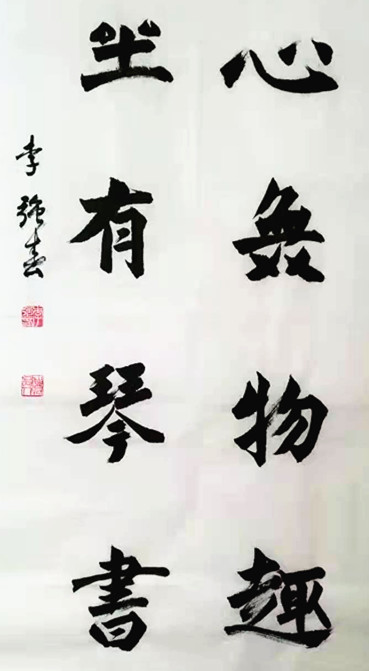 心無物趣
坐有琴書
李強書